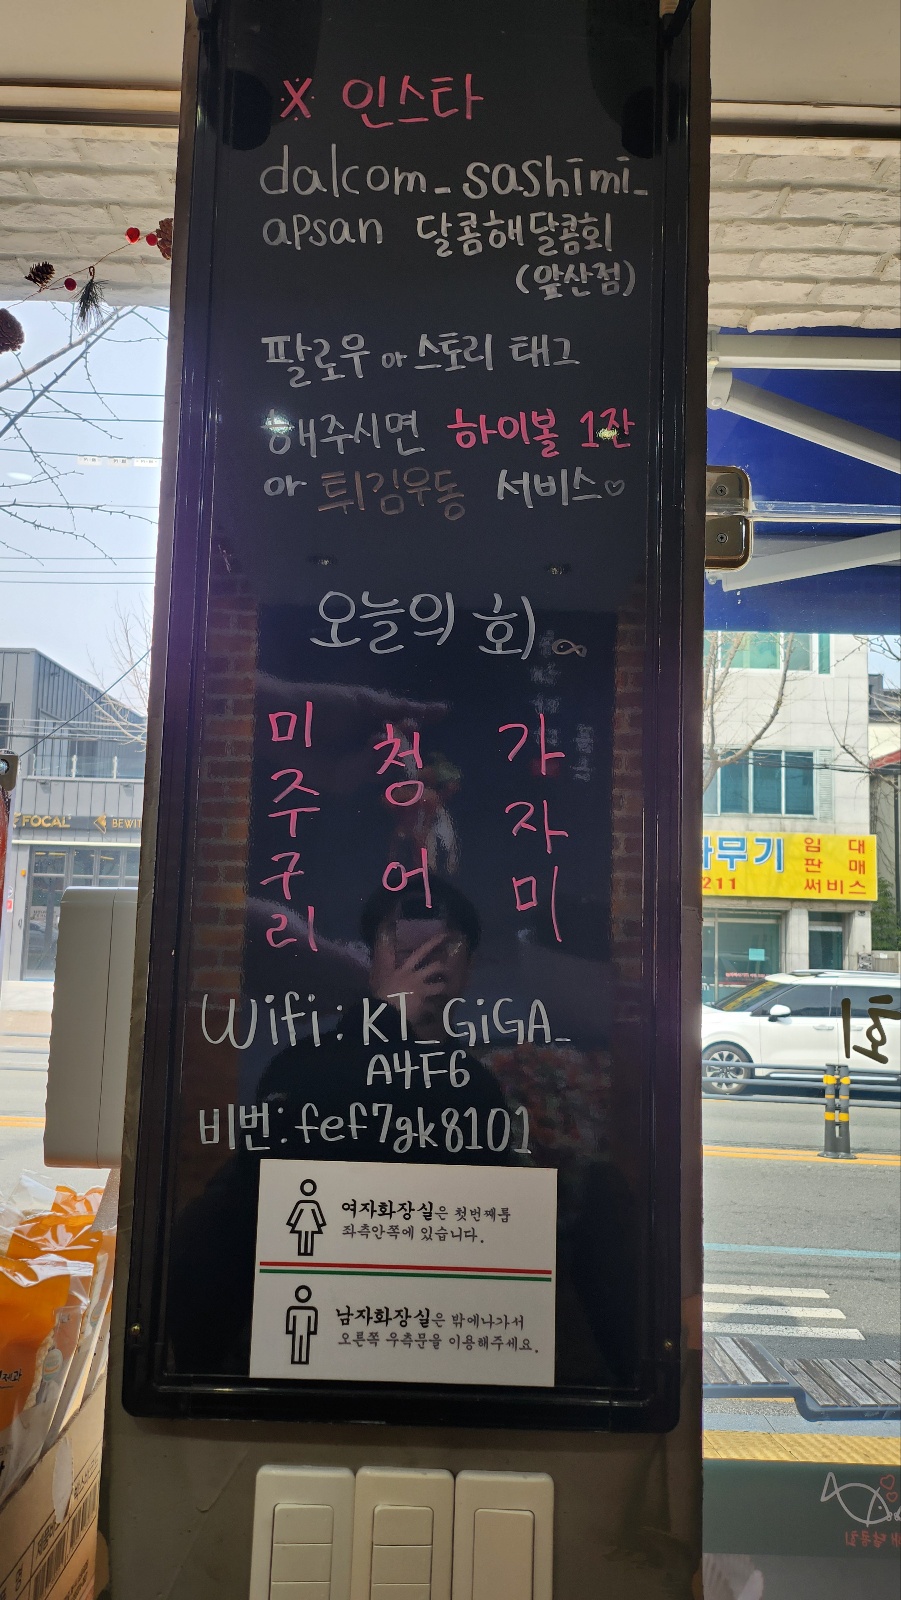 ※ 인스타
dalcom_sashimi_
apsan 달콤해달콤회
(앞산점)
팔로우 와 스토리 태그
해주시면 하이볼 1잔
와 튀김우동 서비스♡
오늘의 회
미주구리
청어
가자미
Wifi: KT_GiGA_
A4F6
비번: fef7gk8101
여자화장실은 첫번째룸
좌측안쪽에 있습니다.
남자화장실은 밖에나가서
오른쪽 우측문을 이용해주세요.
FOCAL
BEWIT
무기
211
임대
판매
써비스
회